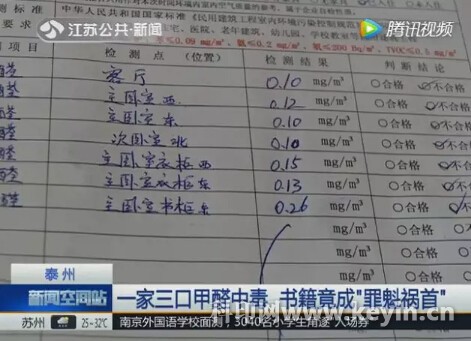 江苏公共·新闻
腾讯视频
测标准
中华人民共和国国家标准《民用建筑工程室内环境污染控制规范
宅、医院、老年建筑、幼儿园、学校教室
≤0.09 mg/m³、氨≤0.2 mg/m³、
项目 检测点 (位置) 检测结果 判断结论
醛 客厅 0.10 mg/m³ ○合格 不合格
醛 主卧室西 0.12 mg/m³ ○合格 不合格
醛 主卧室东 0.10 mg/m³ ○合格 不合格
醛 次卧室北 0.10 mg/m³ ○合格 不合格
醛 主卧室衣柜西 0.15 mg/m³ ○合格 不合格
醛 主卧室衣柜东 0.13 mg/m³ ○合格 不合格
醛 主卧室书柜 0.26 mg/m³ ○合格 不合
mg/m³ ○合格 ○不合
mg/m³ ○合格 ○不
mg/m³ ○合格
泰州
新闻空间站
一家三口甲醛中毒 书籍竟成"罪魁祸首"
苏州 25-32℃ 南京外国语学校面测,3040名小学生角逐"入场券
www.keyin.cn